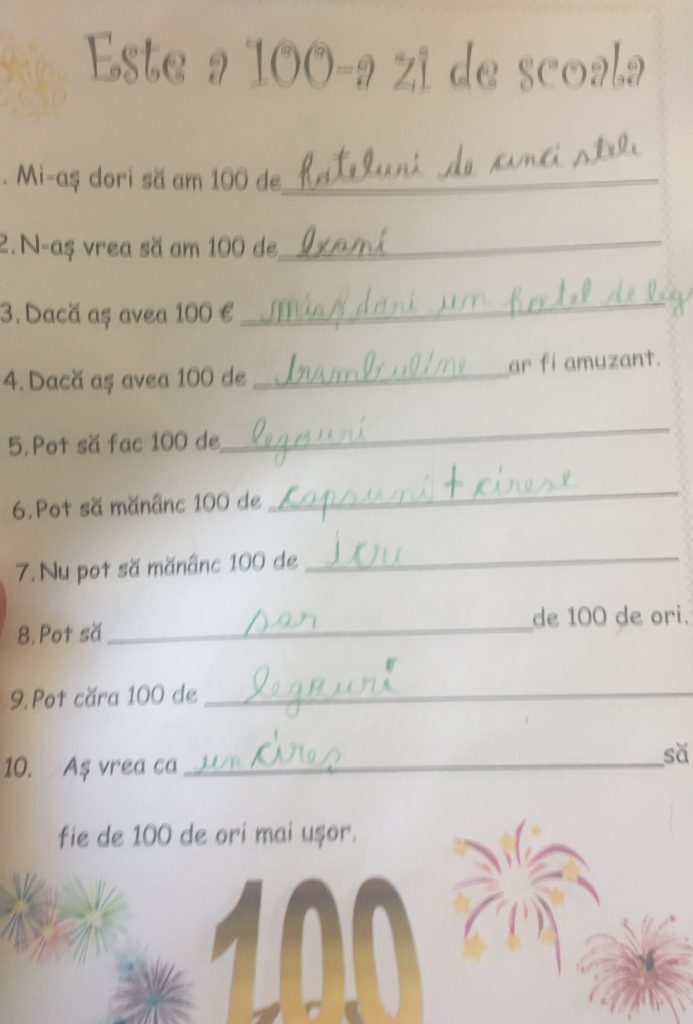 Este a 100-a zi de scoala
. Mi-aş dori să am 100 de hoteluri de cinci stele
2. N-aş vrea să am 100 de
3. Dacă aş avea 100 € un hotel de
4. Dacă aş avea 100 de trambuline ar fi amuzant.
5. Pot să fac 100 de
6. Pot să mănânc 100 de capsuni + cirese
7. Nu pot să mănânc 100 de
8. Pot să sar de 100 de ori.
9. Pot căra 100 de
10. Aş vrea ca un cireș să
fie de 100 de ori mai uşor.
100